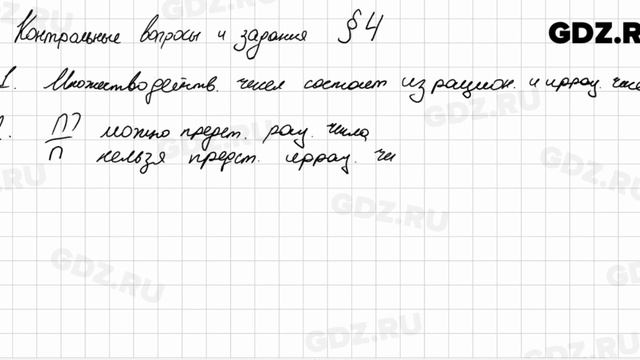 Контрольные вопросы и задания § 4
GDZ.RU
1. Множество действ. чисел состоит из рацион. и иррац. чисе
2. m/n можно предст. рац. числа
нельзя предст. иррац. чи
GDZ.RU
GDZ.RU
GDZ.RU
GDZ.RU
GDZ.RU
GDZ.RU
GDZ.RU